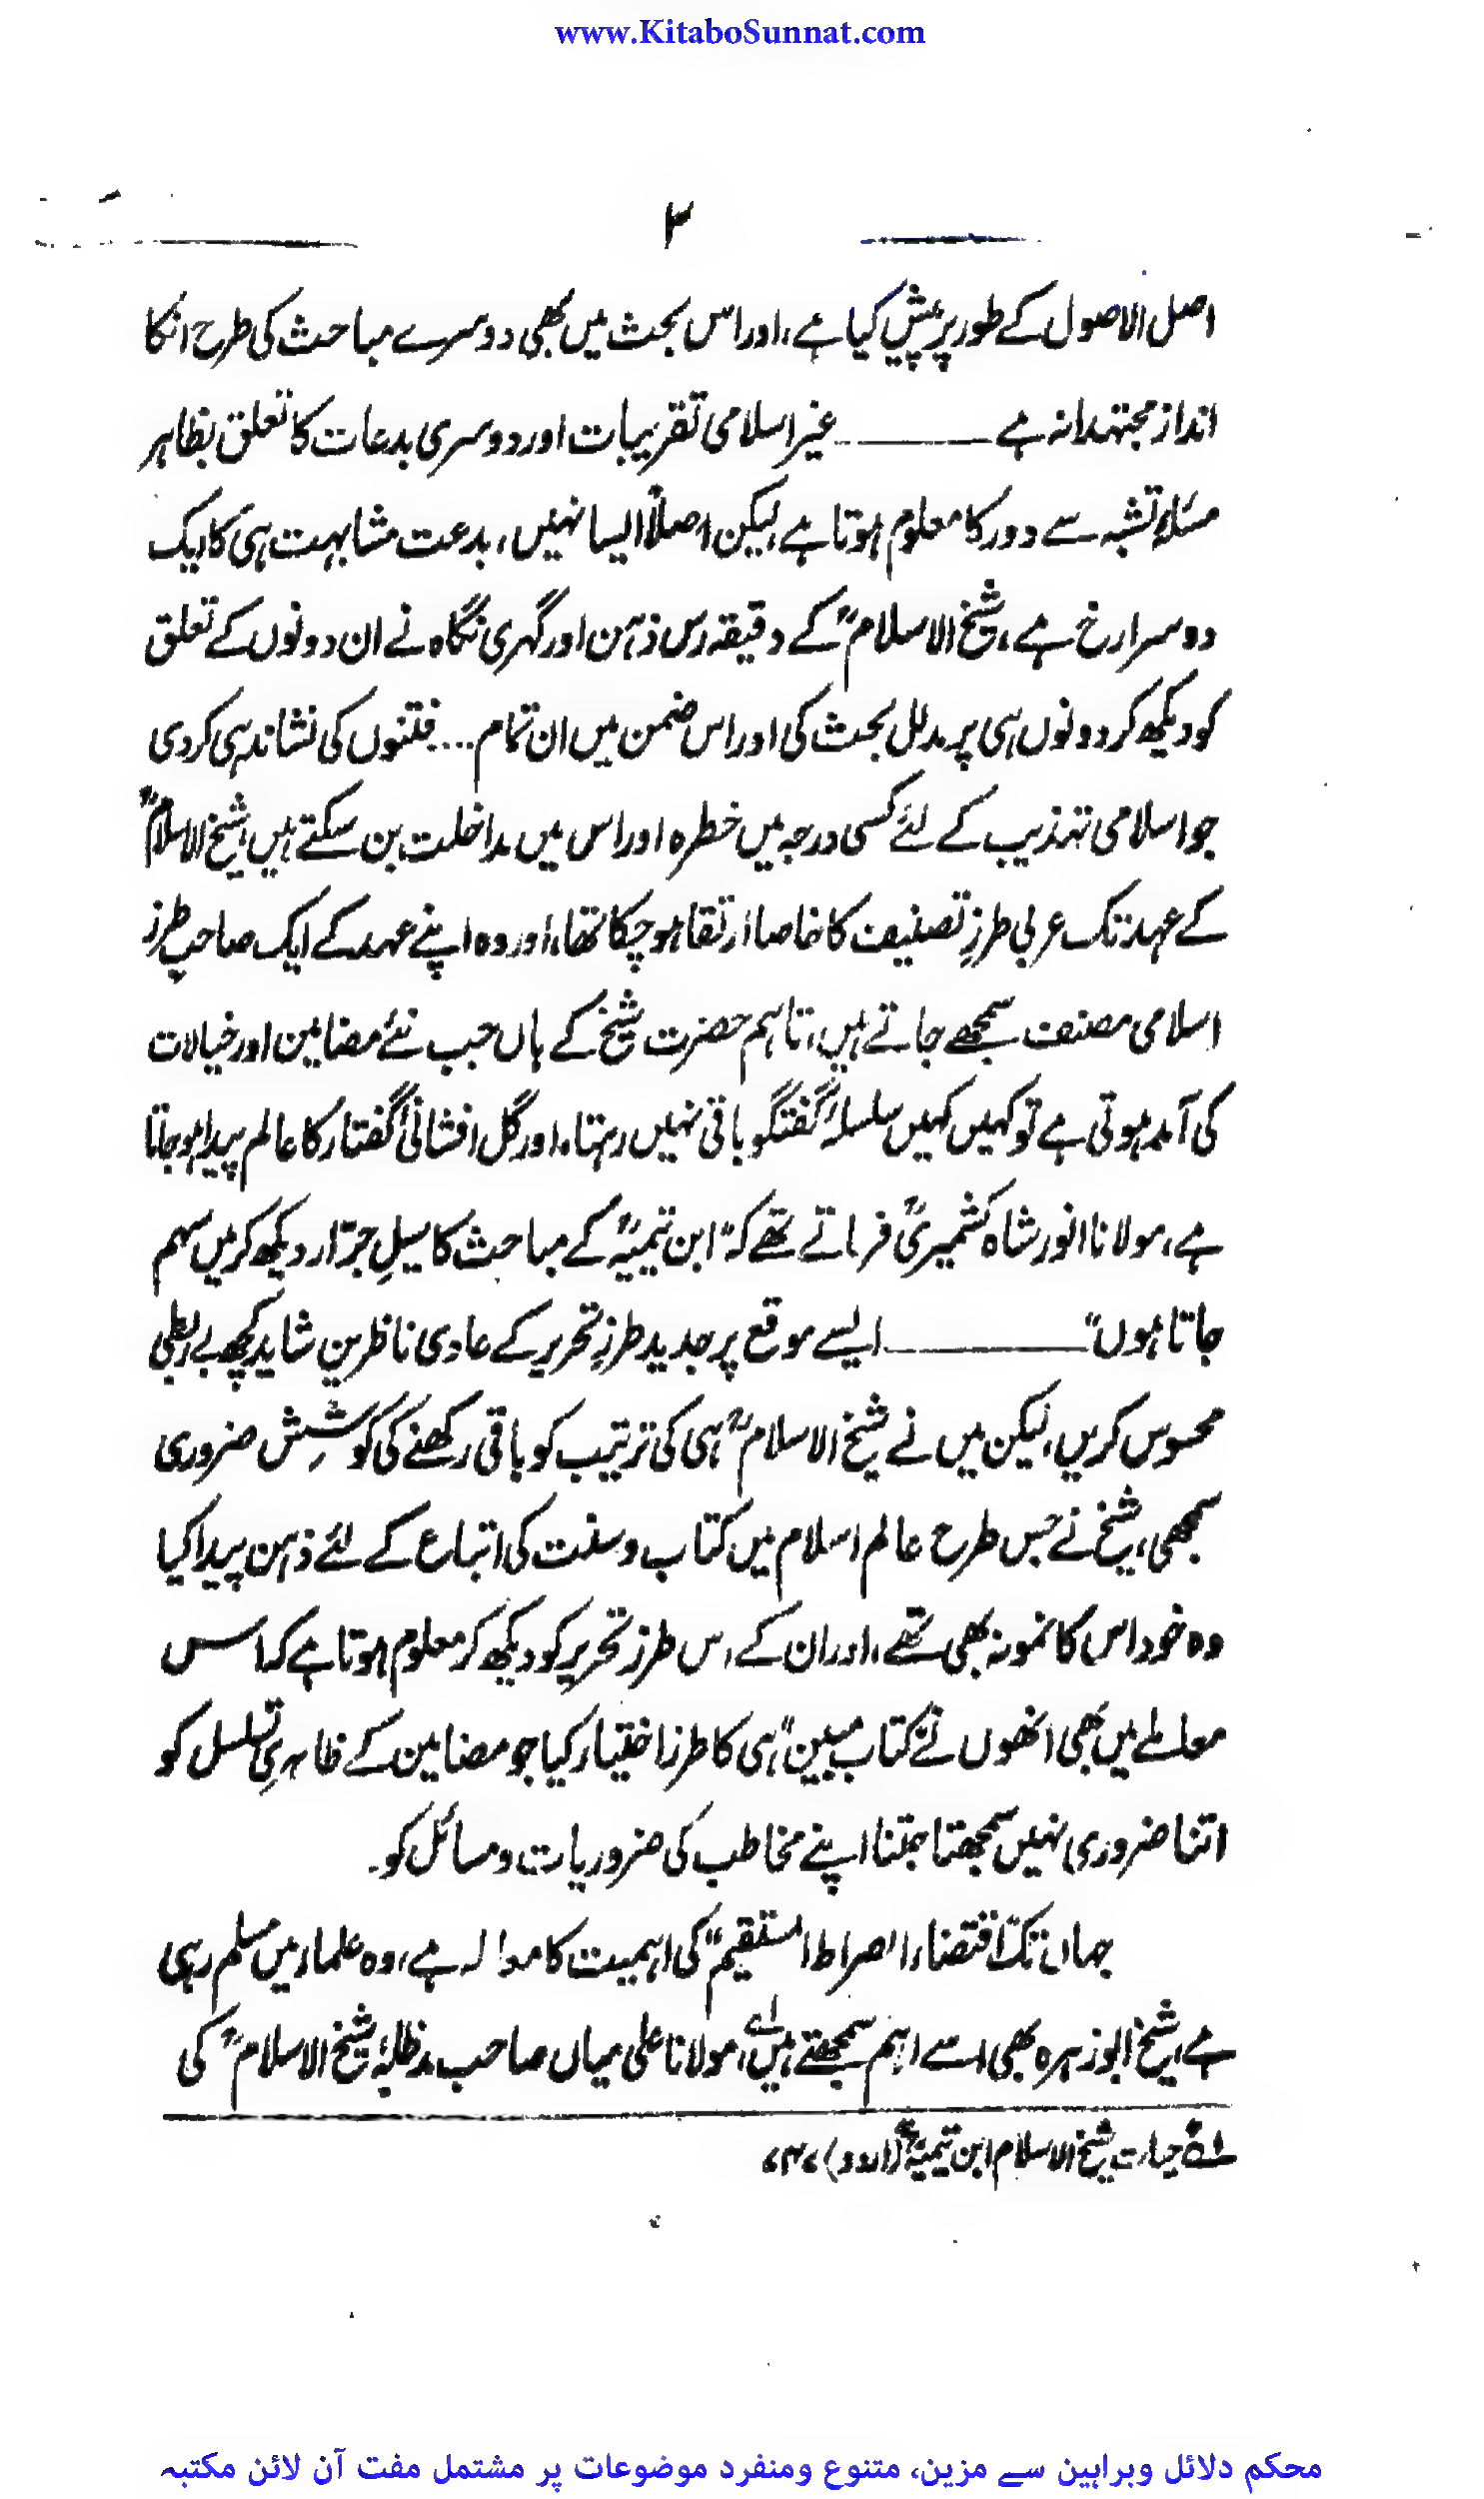 www.KitaboSunnat.com
۲
اصل الاصول کے طور پر پیش کیا ہے، اور اس بحث میں بھی دوسرے مباحث کی طرح انکا
انداز مجتہدانہ ہے ——— غیر اسلامی تقریبات اور دوسری بدعات کا تعلق بظاہر
مسئلہ تشبہ سے دور کا معلوم ہوتا ہے، لیکن اصلاً ایسا نہیں، بدعت مشابہت ہی کا ایک
دوسرا رخ ہے، شیخ الاسلامؒ کے دقیقہ رس ذہن اور گہری نگاہ نے ان دونوں کے تعلق
کو دیکھ کر دونوں ہی پر مدلل بحث کی اور اس ضمن میں ان تمام ... فتنوں کی نشاندہی کر دی
جو اسلامی تہذیب کے لئے کسی درجہ میں خطرہ اور اس میں مداخلت بن سکتے ہیں، شیخ الاسلامؒ
کے عہد تک عربی طرزِ تصنیف کا خاصا ارتقا ہو چکا تھا، اور وہ اپنے عہد کے ایک صاحبِ طرز
اسلامی مصنف سمجھے جاتے ہیں، تاہم حضرت شیخ کے ہاں جب نئے مضامین اور خیالات
کی آمد ہوتی ہے تو کہیں کہیں سلسلۂ گفتگو باقی نہیں رہتا، اور گل افشانیٔ گفتار کا عالم پیدا ہو جاتا
ہے، مولانا انور شاہ کشمیریؒ فرماتے تھے کہ "ابن تیمیہؒ کے مباحث کا سیلِ جرّار دیکھ کر میں سہم
جاتا ہوں" ——— ایسے موقع پر جدید طرزِ تحریر کے عادی ناظرین شاید کچھ بے ربطی
محسوس کریں، لیکن میں نے شیخ الاسلامؒ ہی کی ترتیب کو باقی رکھنے کی کوشش ضروری
سمجھی، شیخ نے جس طرح عالم اسلام میں کتاب و سنت کی اتباع کے لئے ذہن پیدا کیا
وہ خود اس کا نمونہ بھی تھے، اور ان کے اس طرز تحریر کو دیکھ کر معلوم ہوتا ہے کہ اس
معاملے میں بھی انھوں نے "کتاب مبین" ہی کا طرز اختیار کیا جو مضامین کے ظاہری تسلسل کو
اتنا ضروری نہیں سمجھتا جتنا اپنے مخاطب کی ضروریات و مسائل کو۔
جہاں تک "اقتضاء الصراط المستقیم" کی اہمیت کا سوال ہے، وہ علماء میں مسلم رہی
ہے، شیخ ابو زہرہ بھی اسے اہم سمجھتے ہیں، مولانا علی میاں صاحب مدظلہٗ شیخ الاسلامؒ کی
حیات شیخ الاسلام ابن تیمیہؒ (اردو)
محکم دلائل وبراہین سے مزین، متنوع ومنفرد موضوعات پر مشتمل مفت آن لائن مکتبہ